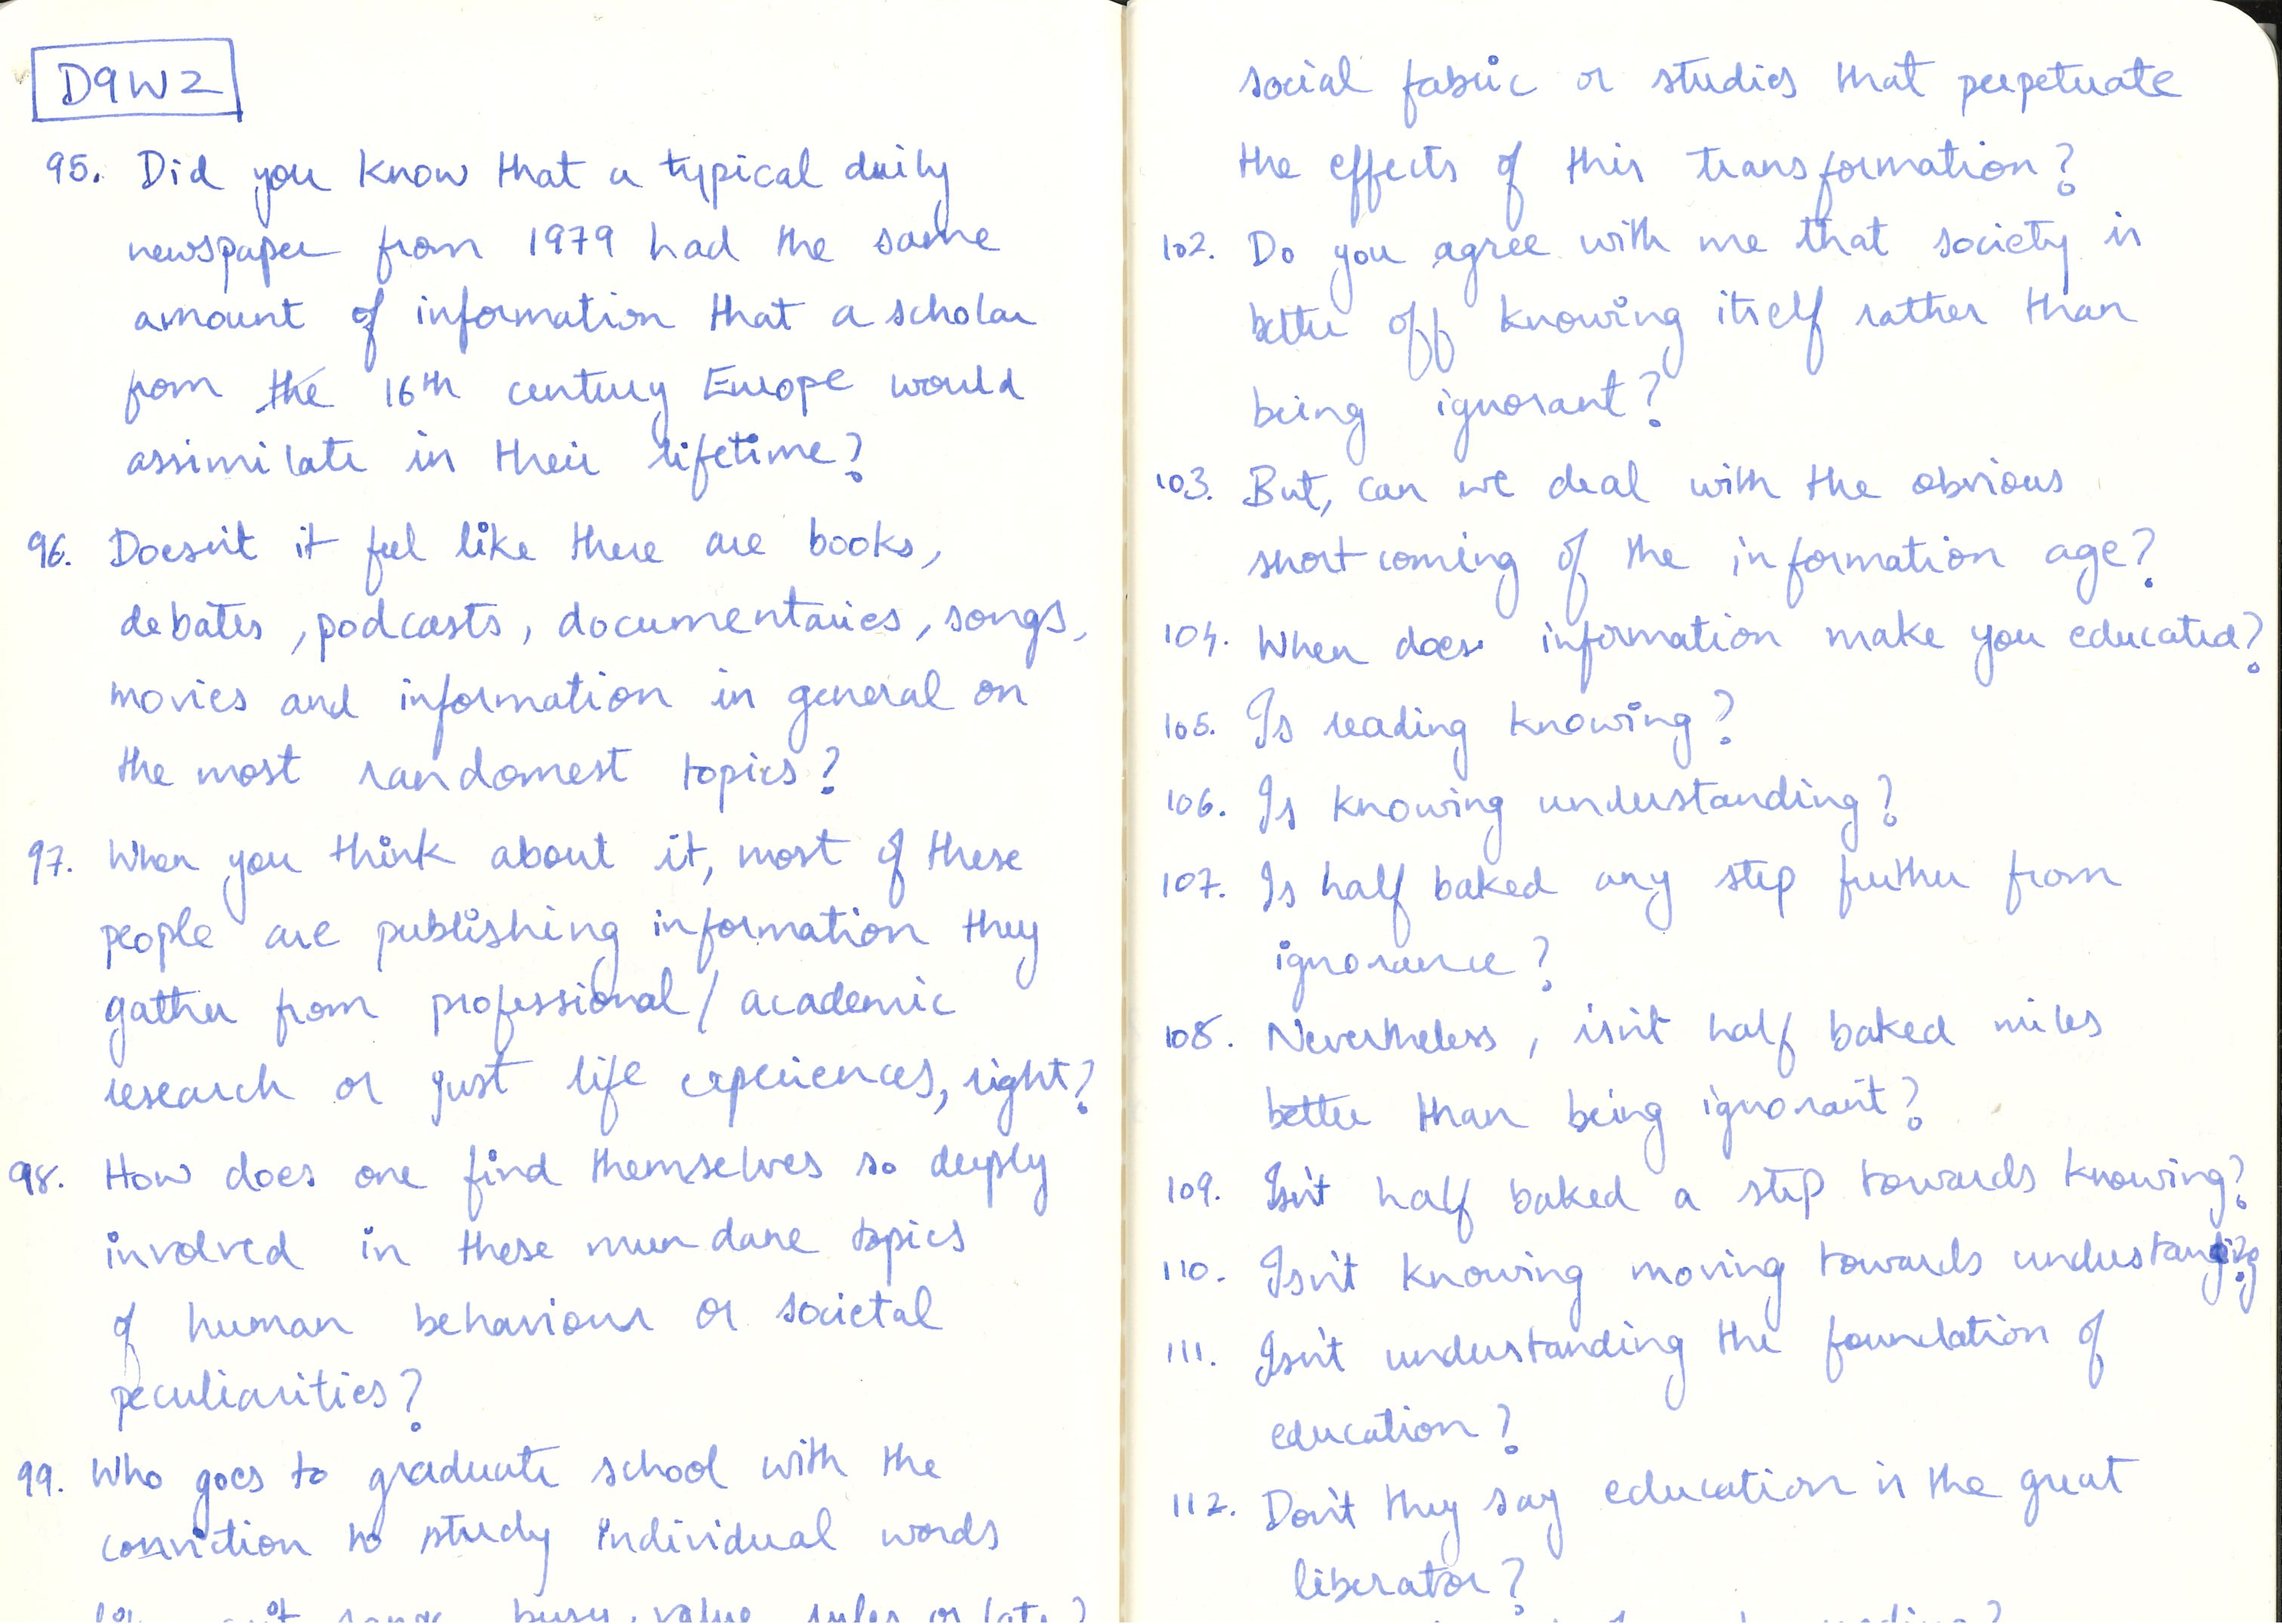 D9W2
95. Did you know that a typical daily
newspaper from 1979 had the same
amount of information that a scholar
from the 16th century Europe would
assimilate in their lifetime?
96. Doesn't it feel like there are books,
debates, podcasts, documentaries, songs,
movies and information in general on
the most randomest topics?
97. When you think about it, most of these
people are publishing information they
gather from professional/academic
research or just life experiences, right?
98. How does one find themselves so deeply
involved in these mundane topics
of human behaviour or societal
peculiarities?
99. Who goes to graduate school with the
conviction to study individual words
busy, value, rules or late?
social fabric or studies that perpetuate
the effects of this transformation?
102. Do you agree with me that society is
better off knowing itself rather than
being ignorant?
103. But, can we deal with the obvious
shortcoming of the information age?
104. When does information make you educated?
105. Is reading knowing?
106. Is knowing understanding?
107. Is half baked any step further from
ignorance?
108. Nevertheless, isn't half baked miles
better than being ignorant?
109. Isn't half baked a step towards knowing?
110. Isn't knowing moving towards understanding?
111. Isn't understanding the foundation of
education?
112. Don't they say education is the great
liberator?